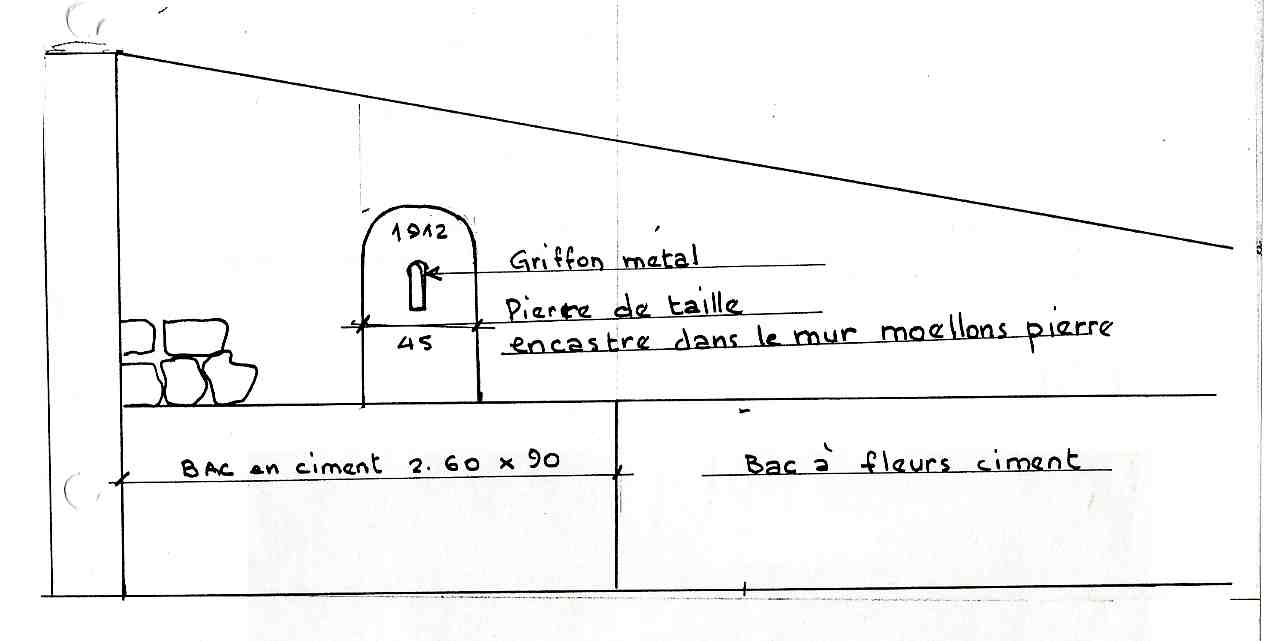 1912
Griffon métal
Pierre de taille
45
encastre dans le mur moellons pierre
BAC en ciment 2.60 x 90
Bac à fleurs ciment